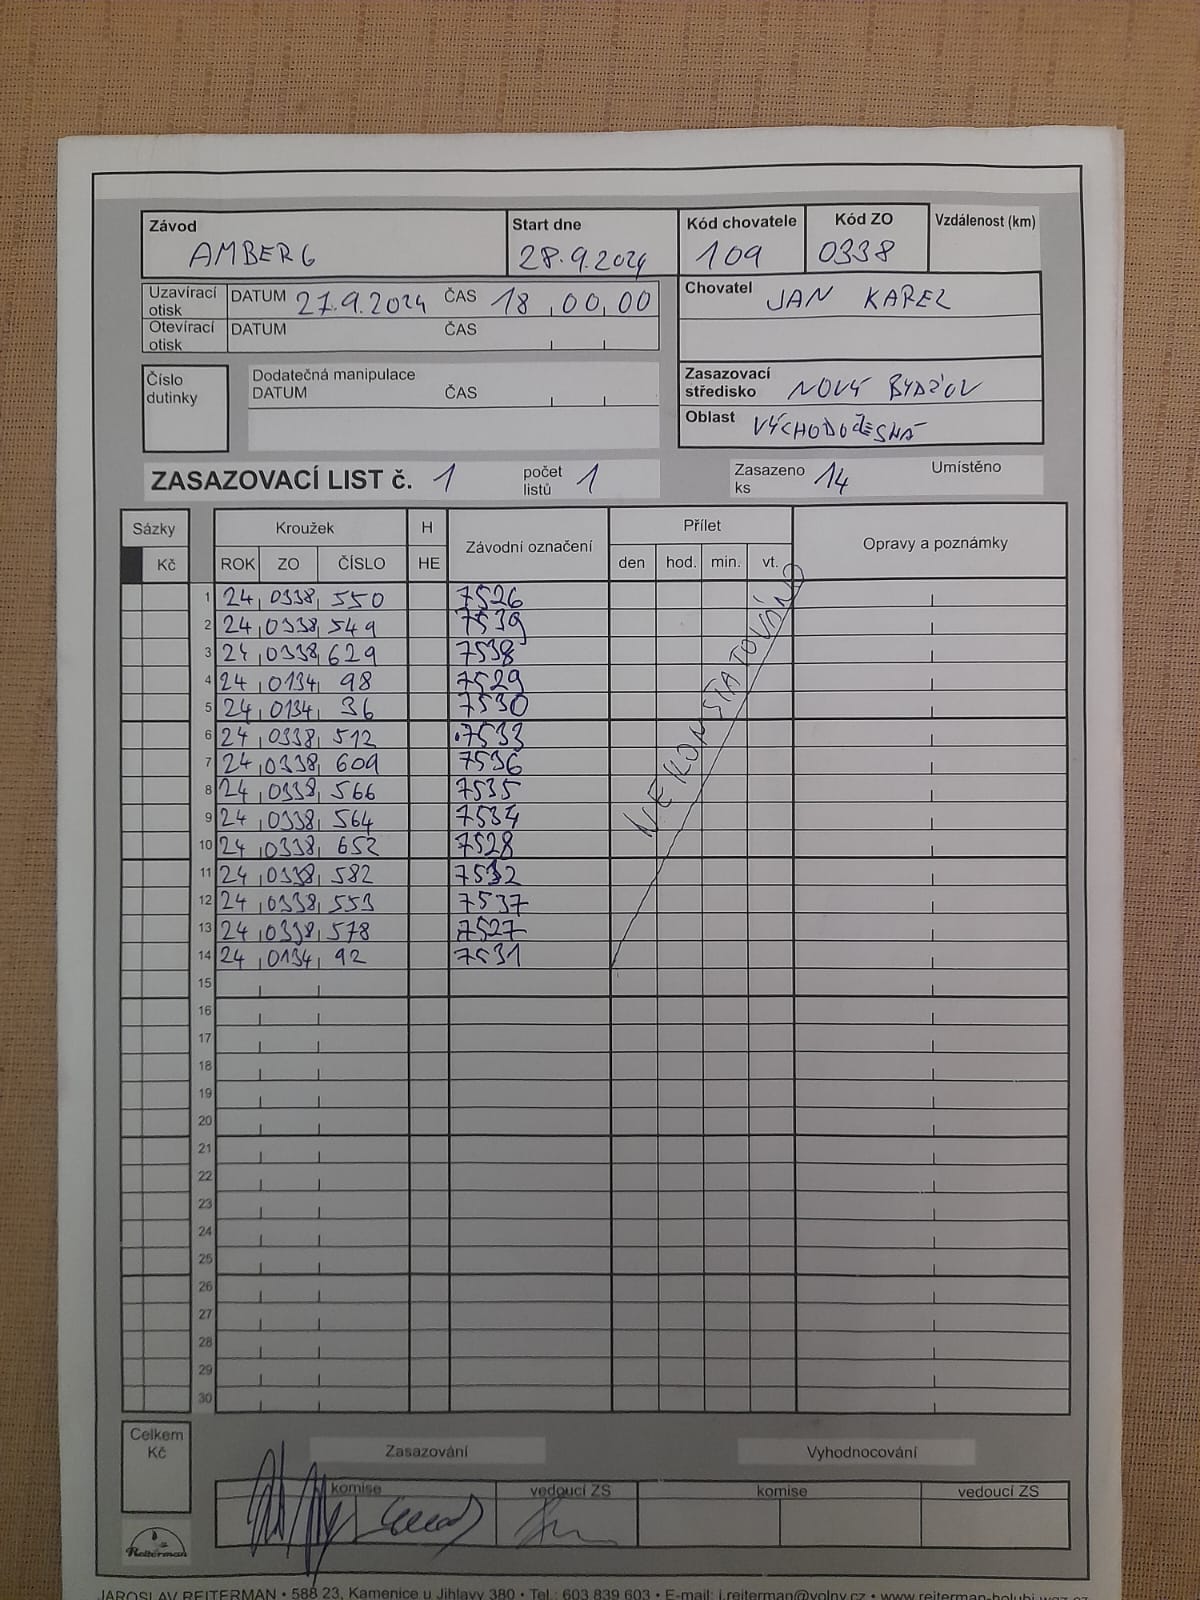 Závod Start dne Kód chovatele Kód ZO Vzdálenost (km)
AMBERG 28.9.2024 109 0338
Uzavírací otisk DATUM 27.9.2024 ČAS 18 00 00
Otevírací otisk DATUM ČAS
Chovatel JAN KAREL
Číslo dutinky
Dodatečná manipulace
DATUM ČAS
Zasazovací středisko NOVÝ BYDŽOV
Oblast VÝCHODOČESKÁ
ZASAZOVACÍ LIST č. 1 počet listů 1 Zasazeno ks 14 Umístěno
Sázky Kroužek H Závodní označení Přílet Opravy a poznámky
Kč ROK ZO ČÍSLO HE den hod. min. vt.
1 24 0338 550 7526
2 24 0338 549 7539
3 24 0338 629 7538
4 24 0134 98 7529
5 24 0134 36 7530
6 24 0338 512 7533
7 24 0338 609 7536
8 24 0338 566 7535
9 24 0338 564 7534
10 24 0338 652 7528
11 24 0338 582 7532
12 24 0338 553 7537
13 24 0338 578 7527
14 24 0134 92 7531
NEKONSTATOVÁNO
15
16
17
18
19
20
21
22
23
24
25
26
27
28
29
30
Celkem Kč
Zasazování Vyhodnocování
komise vedoucí ZS komise vedoucí ZS
Reiterman
JAROSLAV REITERMAN • 588 23, Kamenice u Jihlavy 380 • Tel.: 603 839 603 • E-mail: j.reiterman@volny.cz • www.reiterman-holubi.wgz.cz